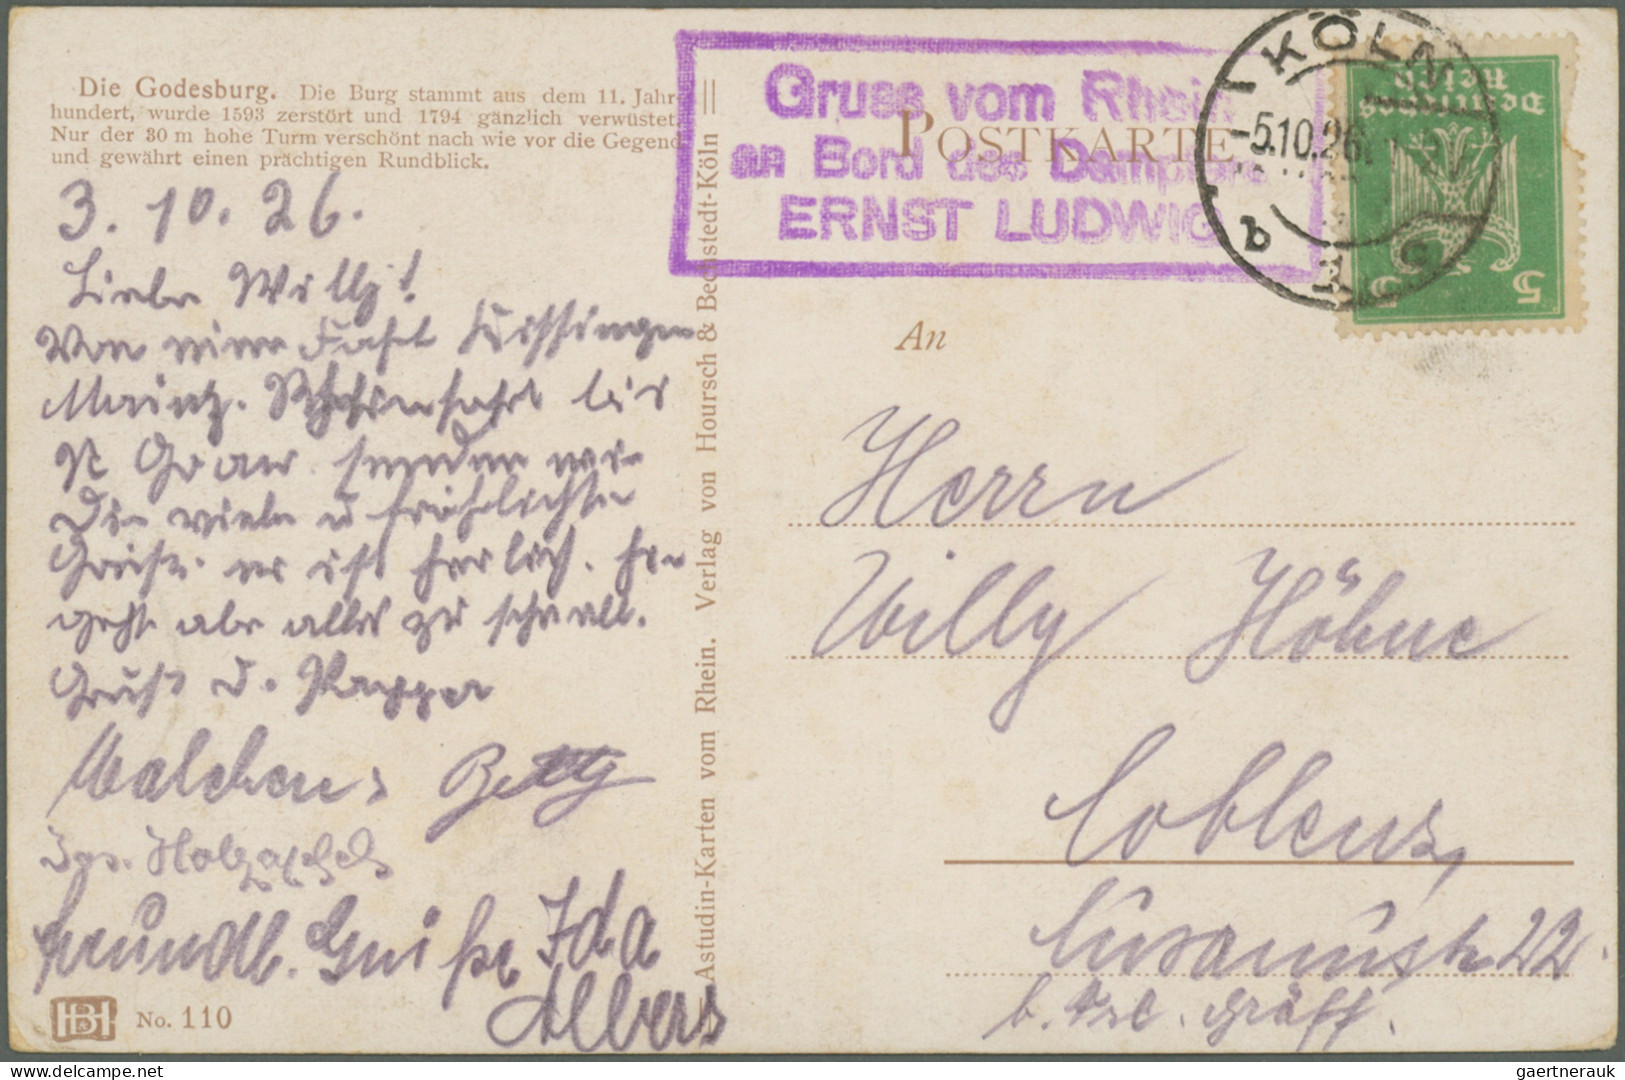 Die Godesburg. Die Burg stammt aus dem 11. Jahr-
hundert, wurde 1593 zerstört und 1794 gänzlich verwüstet.
Nur der 30 m hohe Turm verschönt nach wie vor die Gegend
und gewährt einen prächtigen Rundblick.
3. 10. 26.
Liebe Willy!
Von einer Fahrt Kissingen
Mainz. bis
senden wir
Dir viele u fröhlichste
Grüße. es ist herlich. Hir
geht abe alles zu schnell.
Gruß d. Pappa
Malchen: Betty
freundl. Grüße Ida
Albers
HB&
No. 110
Astudin-Karten vom Rhein. Verlag von Hoursch & Bechstedt-Köln
Gruss vom Rhein
an Bord des Dampfers
ERNST LUDWIG
POSTKARTE
KÖLN
-5.10.26
b
1
Deutsches
Reich
5 5
An
Herrn
Willy Höhne
Coblenz,
22.
b. Gräff.